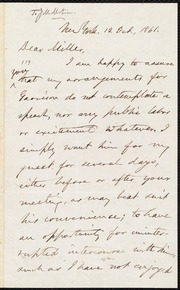 New York, 12 Oct, 1861.
Dear Miller,
I am happy to assure
you that my arrangements for
Garrison do not contemplate a
speech, nor any public labor
or excitement whatever. I
simply want him for my
guest for several days,
either before or after your
meeting, as may best suit
his convenience; to have
an opportunity for uninter-
rupted intercourse with him,
such as I have not enjoyed